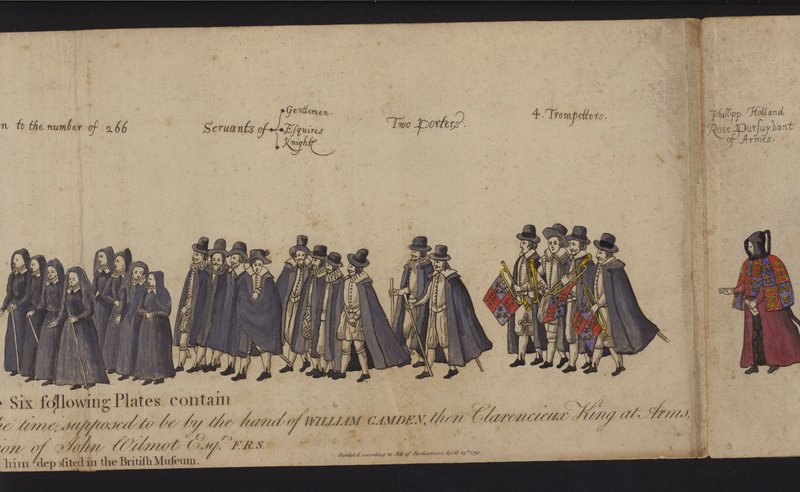 n to the number of. 266
Servants of
Gentlemen.
Esquires
Knights
Two Porters.
4. Trompetters.
Phillipp Holland
Rose Pursuyvant
of Armes.
e Six following Plates contain
he time, supposed to be by the hand of WILLIAM CAMDEN, then Clarencieux King at Arms,
ion of John Wilmot Esqr. F.R.S.
him deposited in the British Museum.
Publish'd according to Act of Parliament April 23d. 1791
3